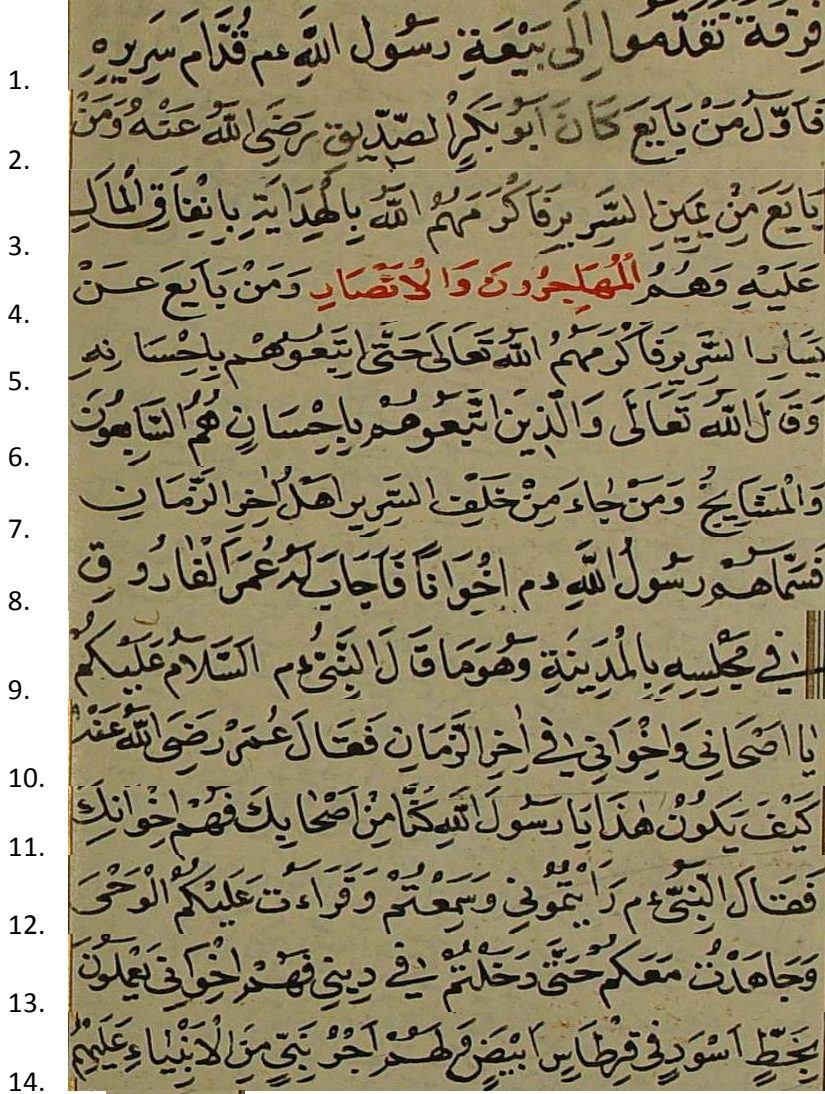 1. فِرْقَةٌ تَقَدَّمُوا اِلَى بَيْعَةِ رَسُولِ اللَّهِ عم قُدَّامَ سَرِيرِهِ
2. فَاَوَّلُ مَنْ بَايَعَ كَانَ اَبُو بَكْرِ الصِّدِّيقِ رَضِىَ اللَّهُ عَنْهُ وَمَنْ
3. بَايَعَ مِنْ يَمِينِ السَّرِيرِ فَاَكْرَمَهُمُ اللَّهُ بِالْهِدَايَةِ بِاِنْفَاقِ الْمَالِ
4. عَلَيْهِ وَهُمُ الْمُهَاجِرُونَ وَالْاَنْصَارِ وَمَنْ بَايَعَ عَنْ
5. يَسَارِ السَّرِيرِ فَاَكْرَمَهُمُ اللَّهُ تَعَالَى حَتَّى اتَّبَعُوهُمْ بِاِحْسَانِهِ
6. وَقَالَ اللَّهُ تَعَالَى وَالَّذِينَ اتَّبَعُوهُمْ بِاِحْسَانٍ هُمُ التَّابِعُونَ
7. وَالْمَشَايِخُ وَمَنْ جَاءَ مِنْ خَلْفِ السَّرِيرِ اَهْلُ اٰخِرِ الزَّمَانِ
8. فَسَمَّاهُمْ رَسُولُ اللَّهِ عم اِخْوَانًا فَاَجَابَ لَهُ عُمَرَ الْفَارُوقِ
9. فِي مَجْلِسِهِ بِالْمَدِينَةِ وَهُوَ مَا قَالَ النَّبِىُّ عم السَّلَامُ عَلَيْكُمْ
10. يَا اَصْحَابِى وَاِخْوَانِى فِي اٰخِرِ الزَّمَانِ فَقَالَ عُمَرْ رَضِىَ اللَّهُ عَنْهُ
11. كَيْفَ يَكُونُ هٰذَا يَا رَسُولَ اللَّهِ كُنَّا مِنْ اَصْحَابِكَ فَهُمْ اِخْوَانِكَ
12. فَقَالَ النَّبِىُّ عم رَاَيْتُمُونِى وَسَمِعْتُمْ وَقَرَاءْتُ عَلَيْكُمُ الْوَحْىَ
13. وَجَاهَدْتُ مَعَكُمْ حَتَّى دَخَلْتُمْ فِي دِينِى فَهُمْ اِخْوَانِى يَعْمَلُونَ
14. بِخَطٍّ اَسْوَدٍ فِى قِرْطَاسٍ اَبْيَضَ وَلَهُمْ اَجْرُ نَبِىٍّ مِنَ الْاَنْبِيَاءِ عَلَيْهِمْ